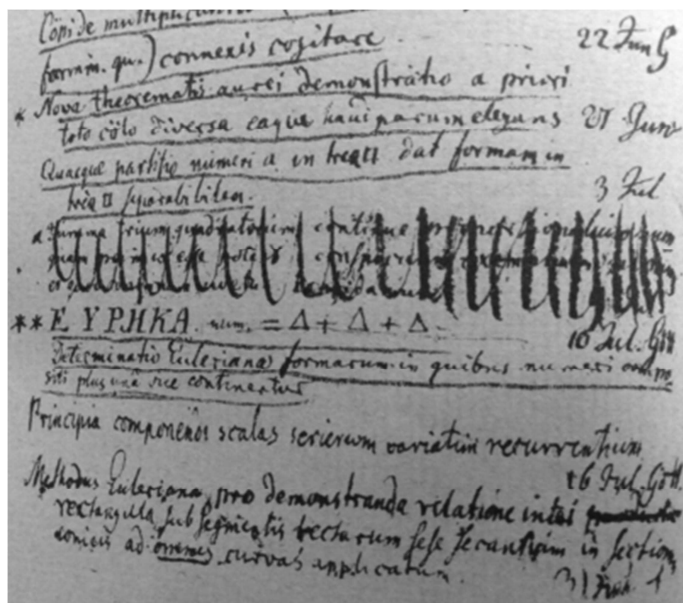 Consi de multiplicatoribus
formm. qu.) connexis cogitare. 22 Jun G
* Nova theorematis aurei demonstratio a priori
toto cölo diversa eaque haud parum elegans 27 Jun
Quaeque partitio numeri a in tres □ dat formam in
tres □ separabilem. 3 Jul
* Summa trium quadratorum continue proportionalium
** ΕΥΡΗΚΑ num. = Δ + Δ + Δ. 10 Jul. Gött
Determinatio Euleriana formarum in quibus numeri compo
siti plus una vice continentur
Principia componendi scalas serierum variatim recurrentium
16 Jul. Gött.
Methodus Euleriana pro demonstranda relatione inter
rectangula sub segmentis rectarum sese secantium in section
conicis ad omnes curvas applicatum.
31 Jul